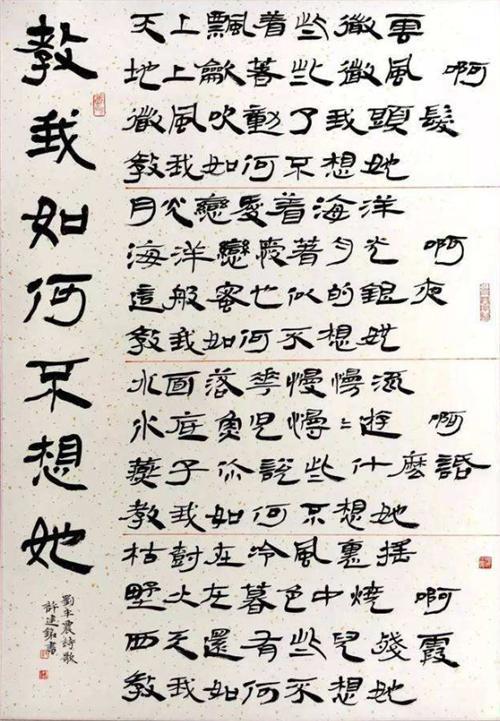 教我如何不想她
天上飄着些微雲
地上龡著些微風 啊
微風吹動了我頭髮
教我如何不想她
月光戀愛着海洋
海洋戀愛著月光 啊
這般蜜也似的銀夜
教我如何不想她
水面落花慢慢流
水底魚兒慢〻遊 啊
燕子你說些什麼話
教我如何不想她
枯樹在冷風裏搖
野火在暮色中燒 啊
西天還有些兒殘霞
教我如何不想她
劉半農詩歌
許建銘書